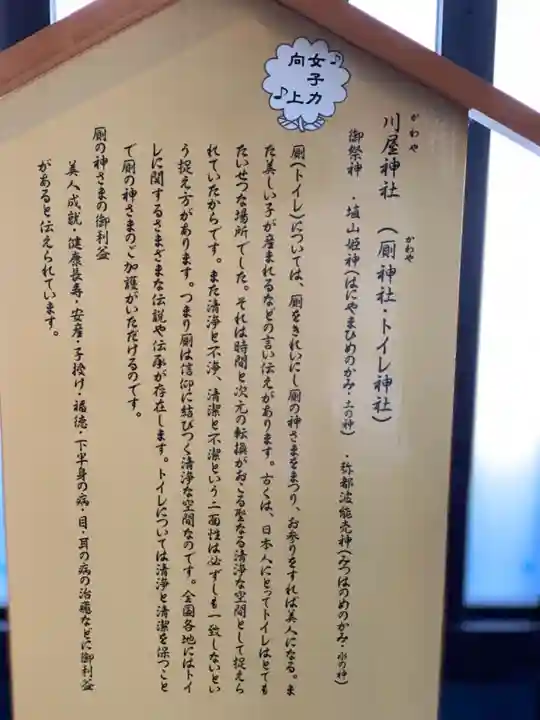 ♪女子力
向上♪
川屋神社（厠神社・トイレ神社）
かわや
かわや
御祭神　・埴山姫神（はにやまひめのかみ・土の神）　・弥都波能売神（みつはのめのかみ・水の神）
厠（トイレ）については、厠をきれいにし厠の神さまをまつり、お参りをすれば美人になる。ま
た美しい子が産まれるなどの言い伝えがあります。古くは、日本人にとってトイレはとても
たいせつな場所でした。それは時間と次元の転換がおこる聖なる清浄な空間として捉えら
れていたからです。また清浄と不浄、清潔と不潔という二面性は必ずしも一致しないとい
う捉え方があります。つまり厠は信仰に結びつく清浄な空間なのです。全国各地にはトイ
レに関するさまざまな伝説や伝承が存在します。トイレについては清浄と清潔を保つこと
で厠の神さまのご加護がいただけるのです。
厠の神さまの御利益
美人成就・健康長寿・安産・子授け・福徳・下半身の病・目・耳の病の治癒などに御利益
があると伝えられています。